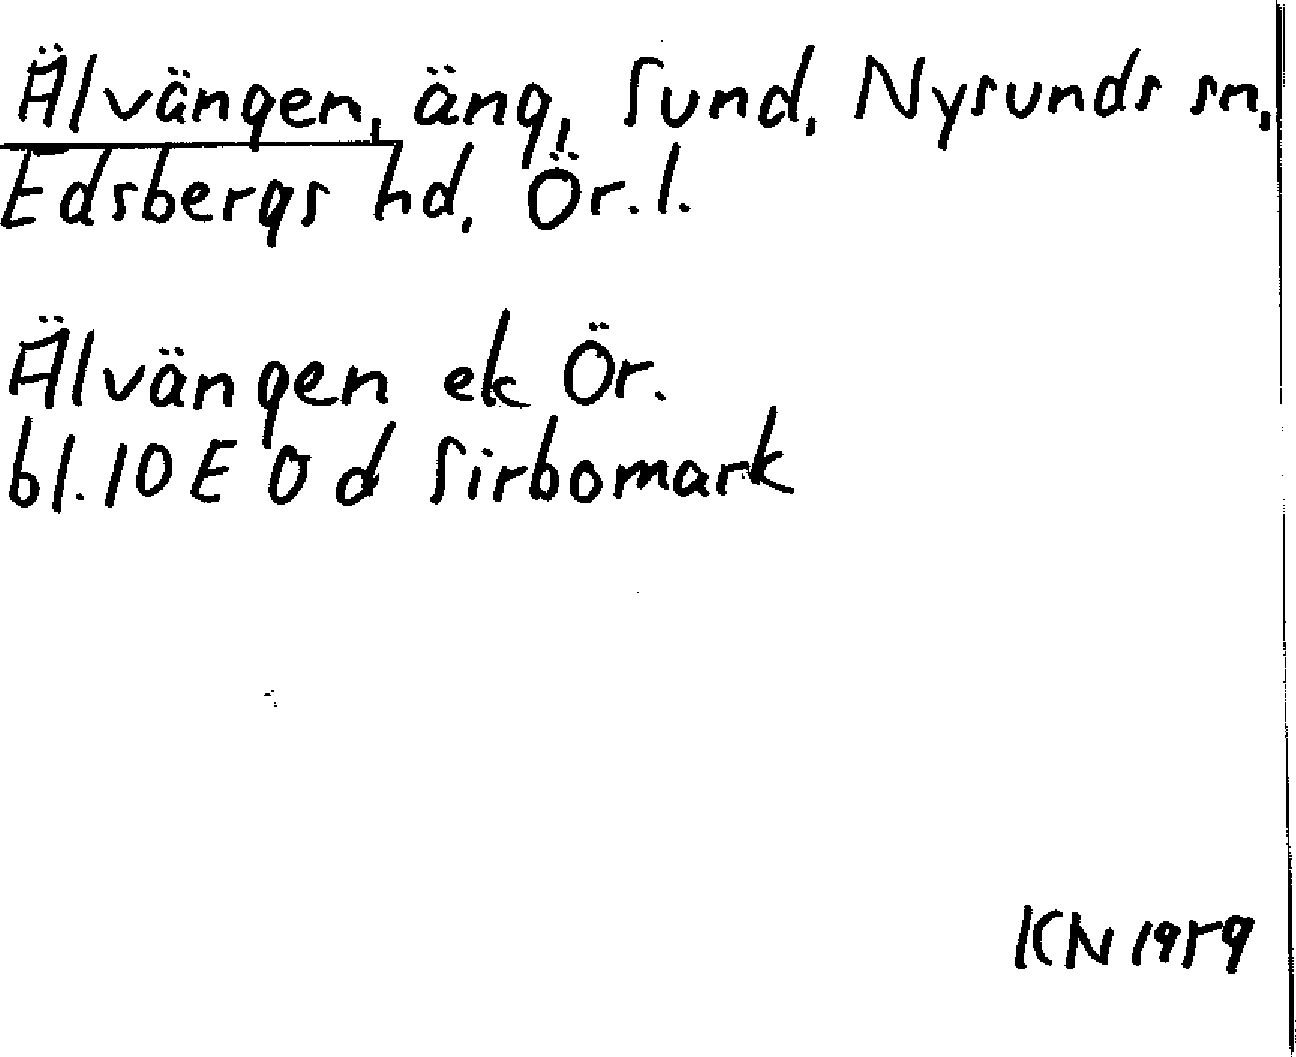 Älvängen, äng, Sund, Nysunds sn,
Edsbergs hd, Ör.l.
Älvängen ek Ör.
bl. 10 E 0 d Sirbomark
KN 1959